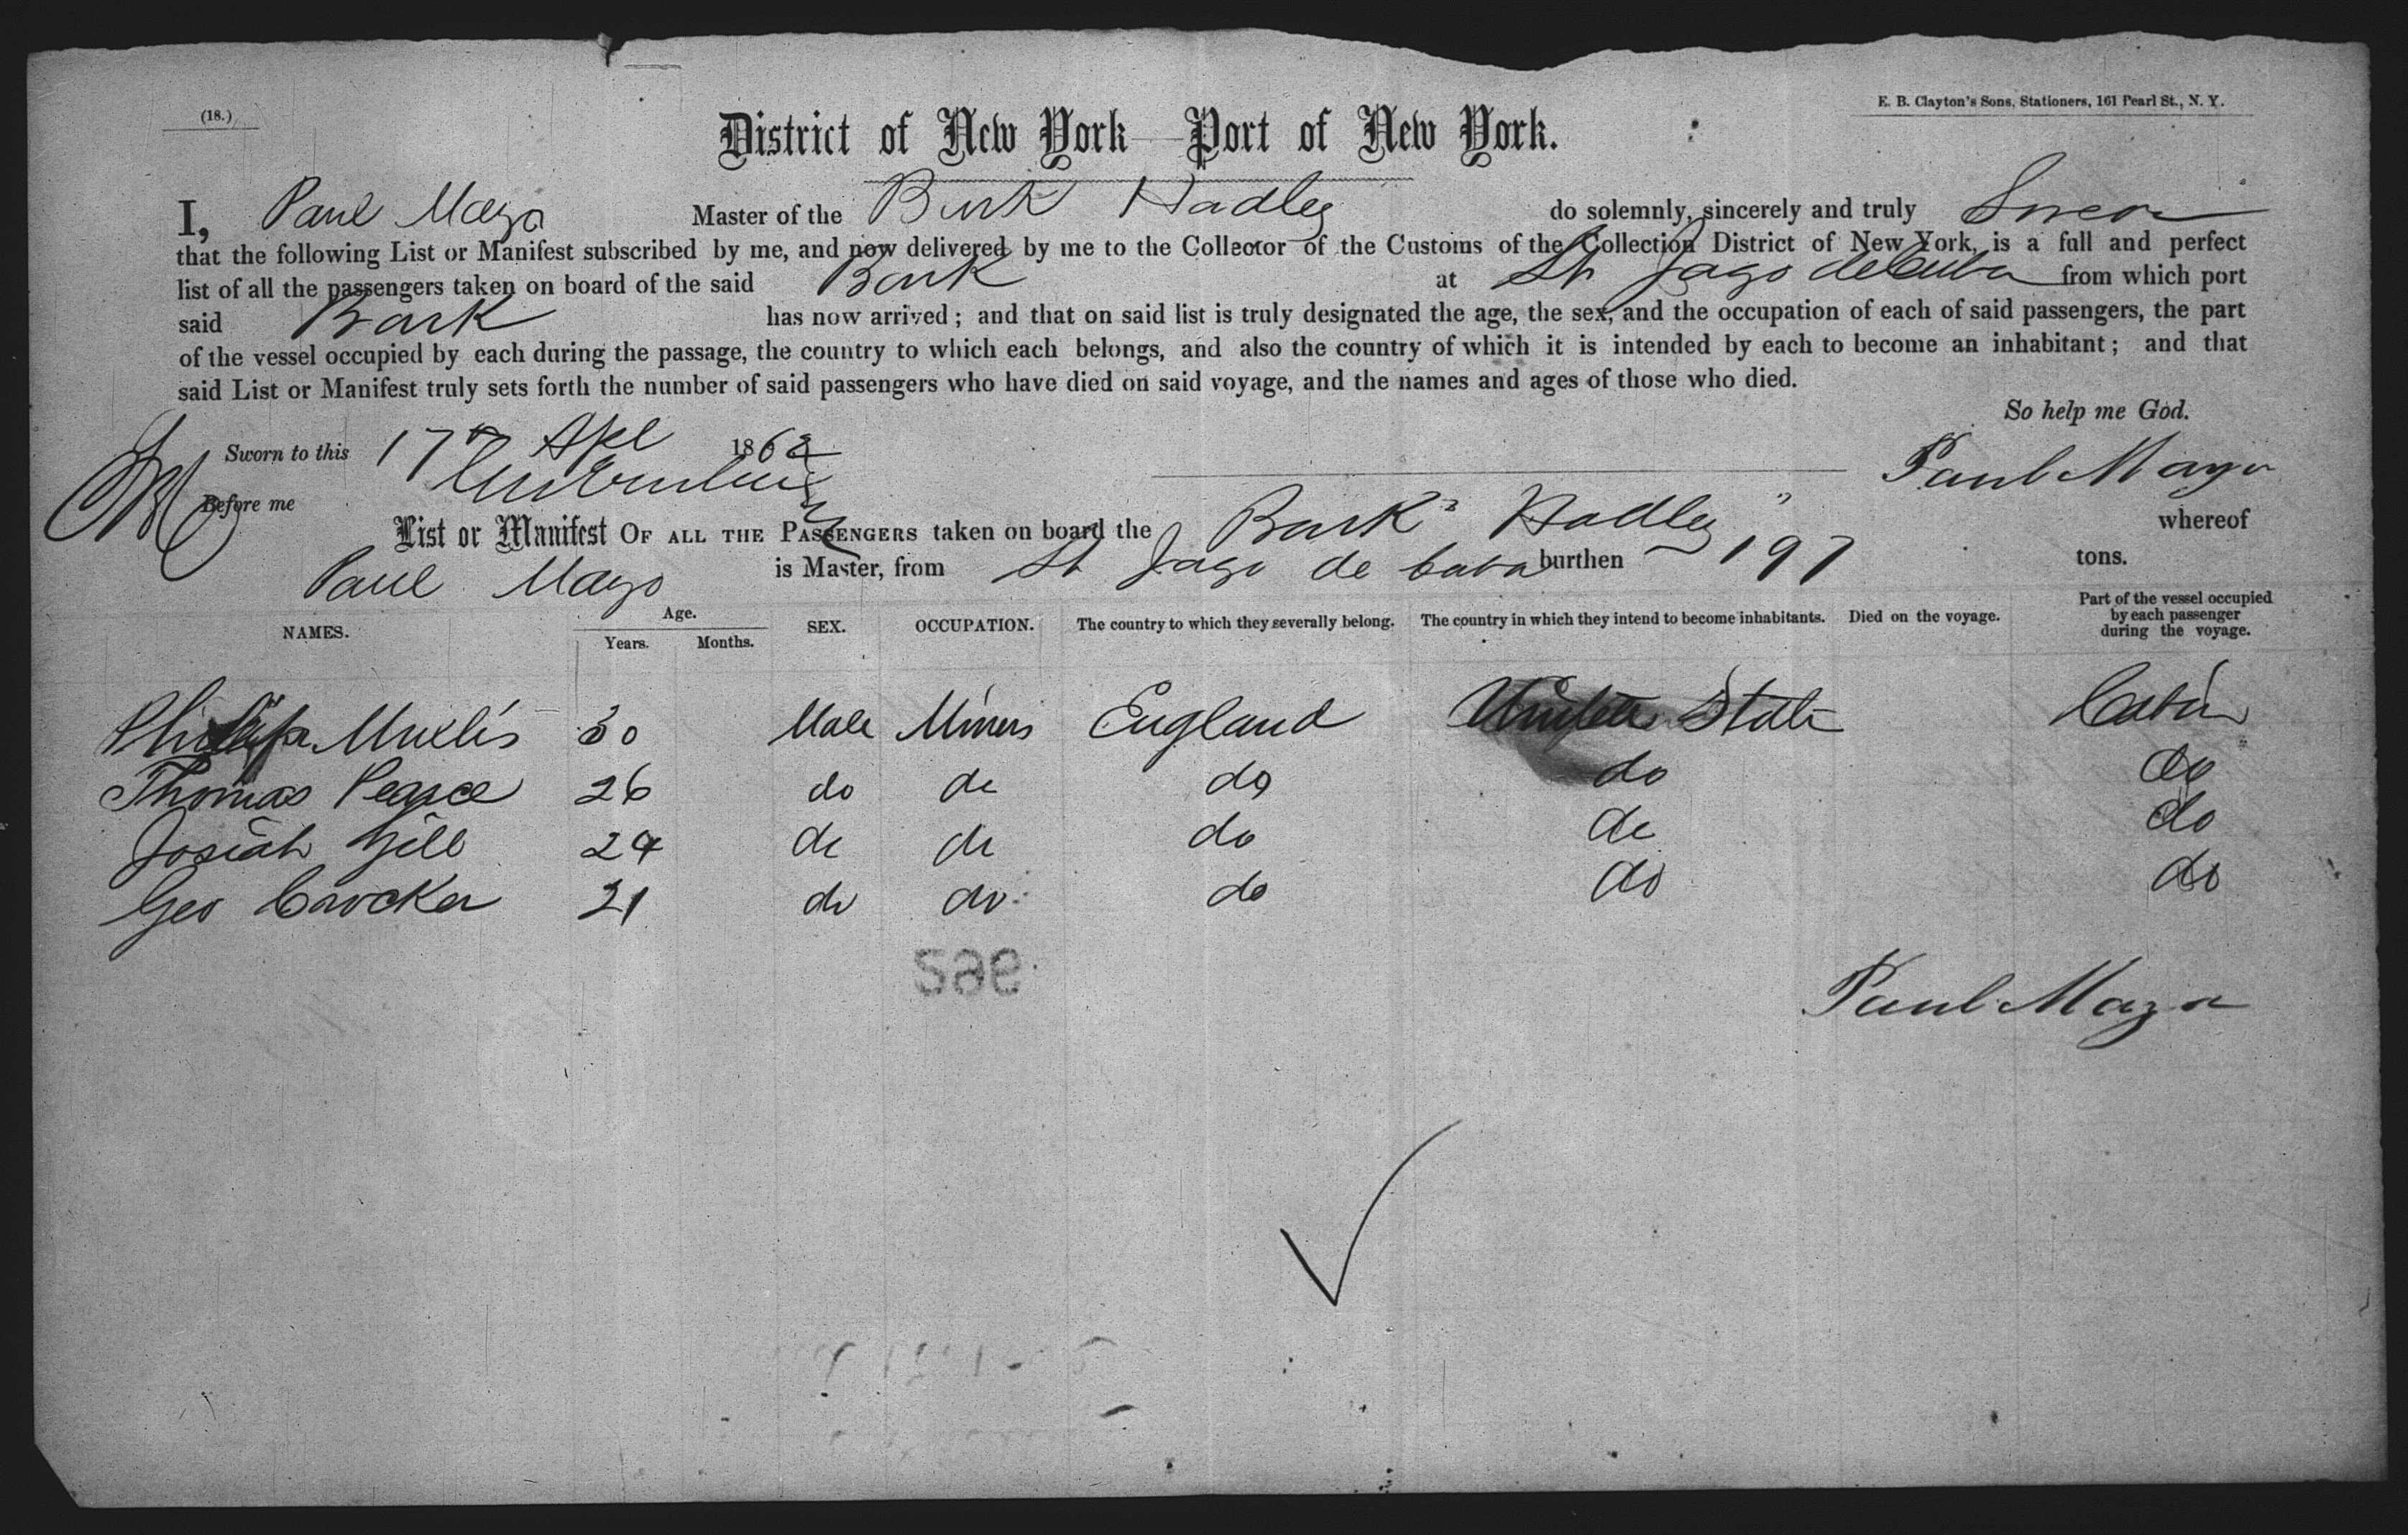 (18.)
E. B. Clayton's Sons, Stationers, 161 Pearl St., N. Y.
District of New York—Port of New York.
I, Paul Mayo Master of the Bark Hadley do solemnly, sincerely and truly Swear
that the following List or Manifest subscribed by me, and now delivered by me to the Collector of the Customs of the Collection District of New York, is a full and perfect
list of all the passengers taken on board of the said Bark at St Jago de Cuba from which port
said Bark has now arrived; and that on said list is truly designated the age, the sex, and the occupation of each of said passengers, the part
of the vessel occupied by each during the passage, the country to which each belongs, and also the country of which it is intended by each to become an inhabitant; and that
said List or Manifest truly sets forth the number of said passengers who have died on said voyage, and the names and ages of those who died.
So help me God.
Sworn to this 17th Apl 1862
Paul Mayo
Before me
List or Manifest OF ALL THE PASSENGERS taken on board the Bark "Hadley" whereof
Paul Mayo is Master, from St Jago de Cuba burthen 197 tons.
NAMES. Age. Years. Months. SEX. OCCUPATION. The country to which they severally belong. The country in which they intend to become inhabitants. Died on the voyage. Part of the vessel occupied by each passenger during the voyage.
Philip 30 Male Miners England United State Cabin
Thomas Pearce 26 do do do do do
Josiah Gill 24 do do do do do
Geo Crocker 21 do do do do do
Paul Mayo